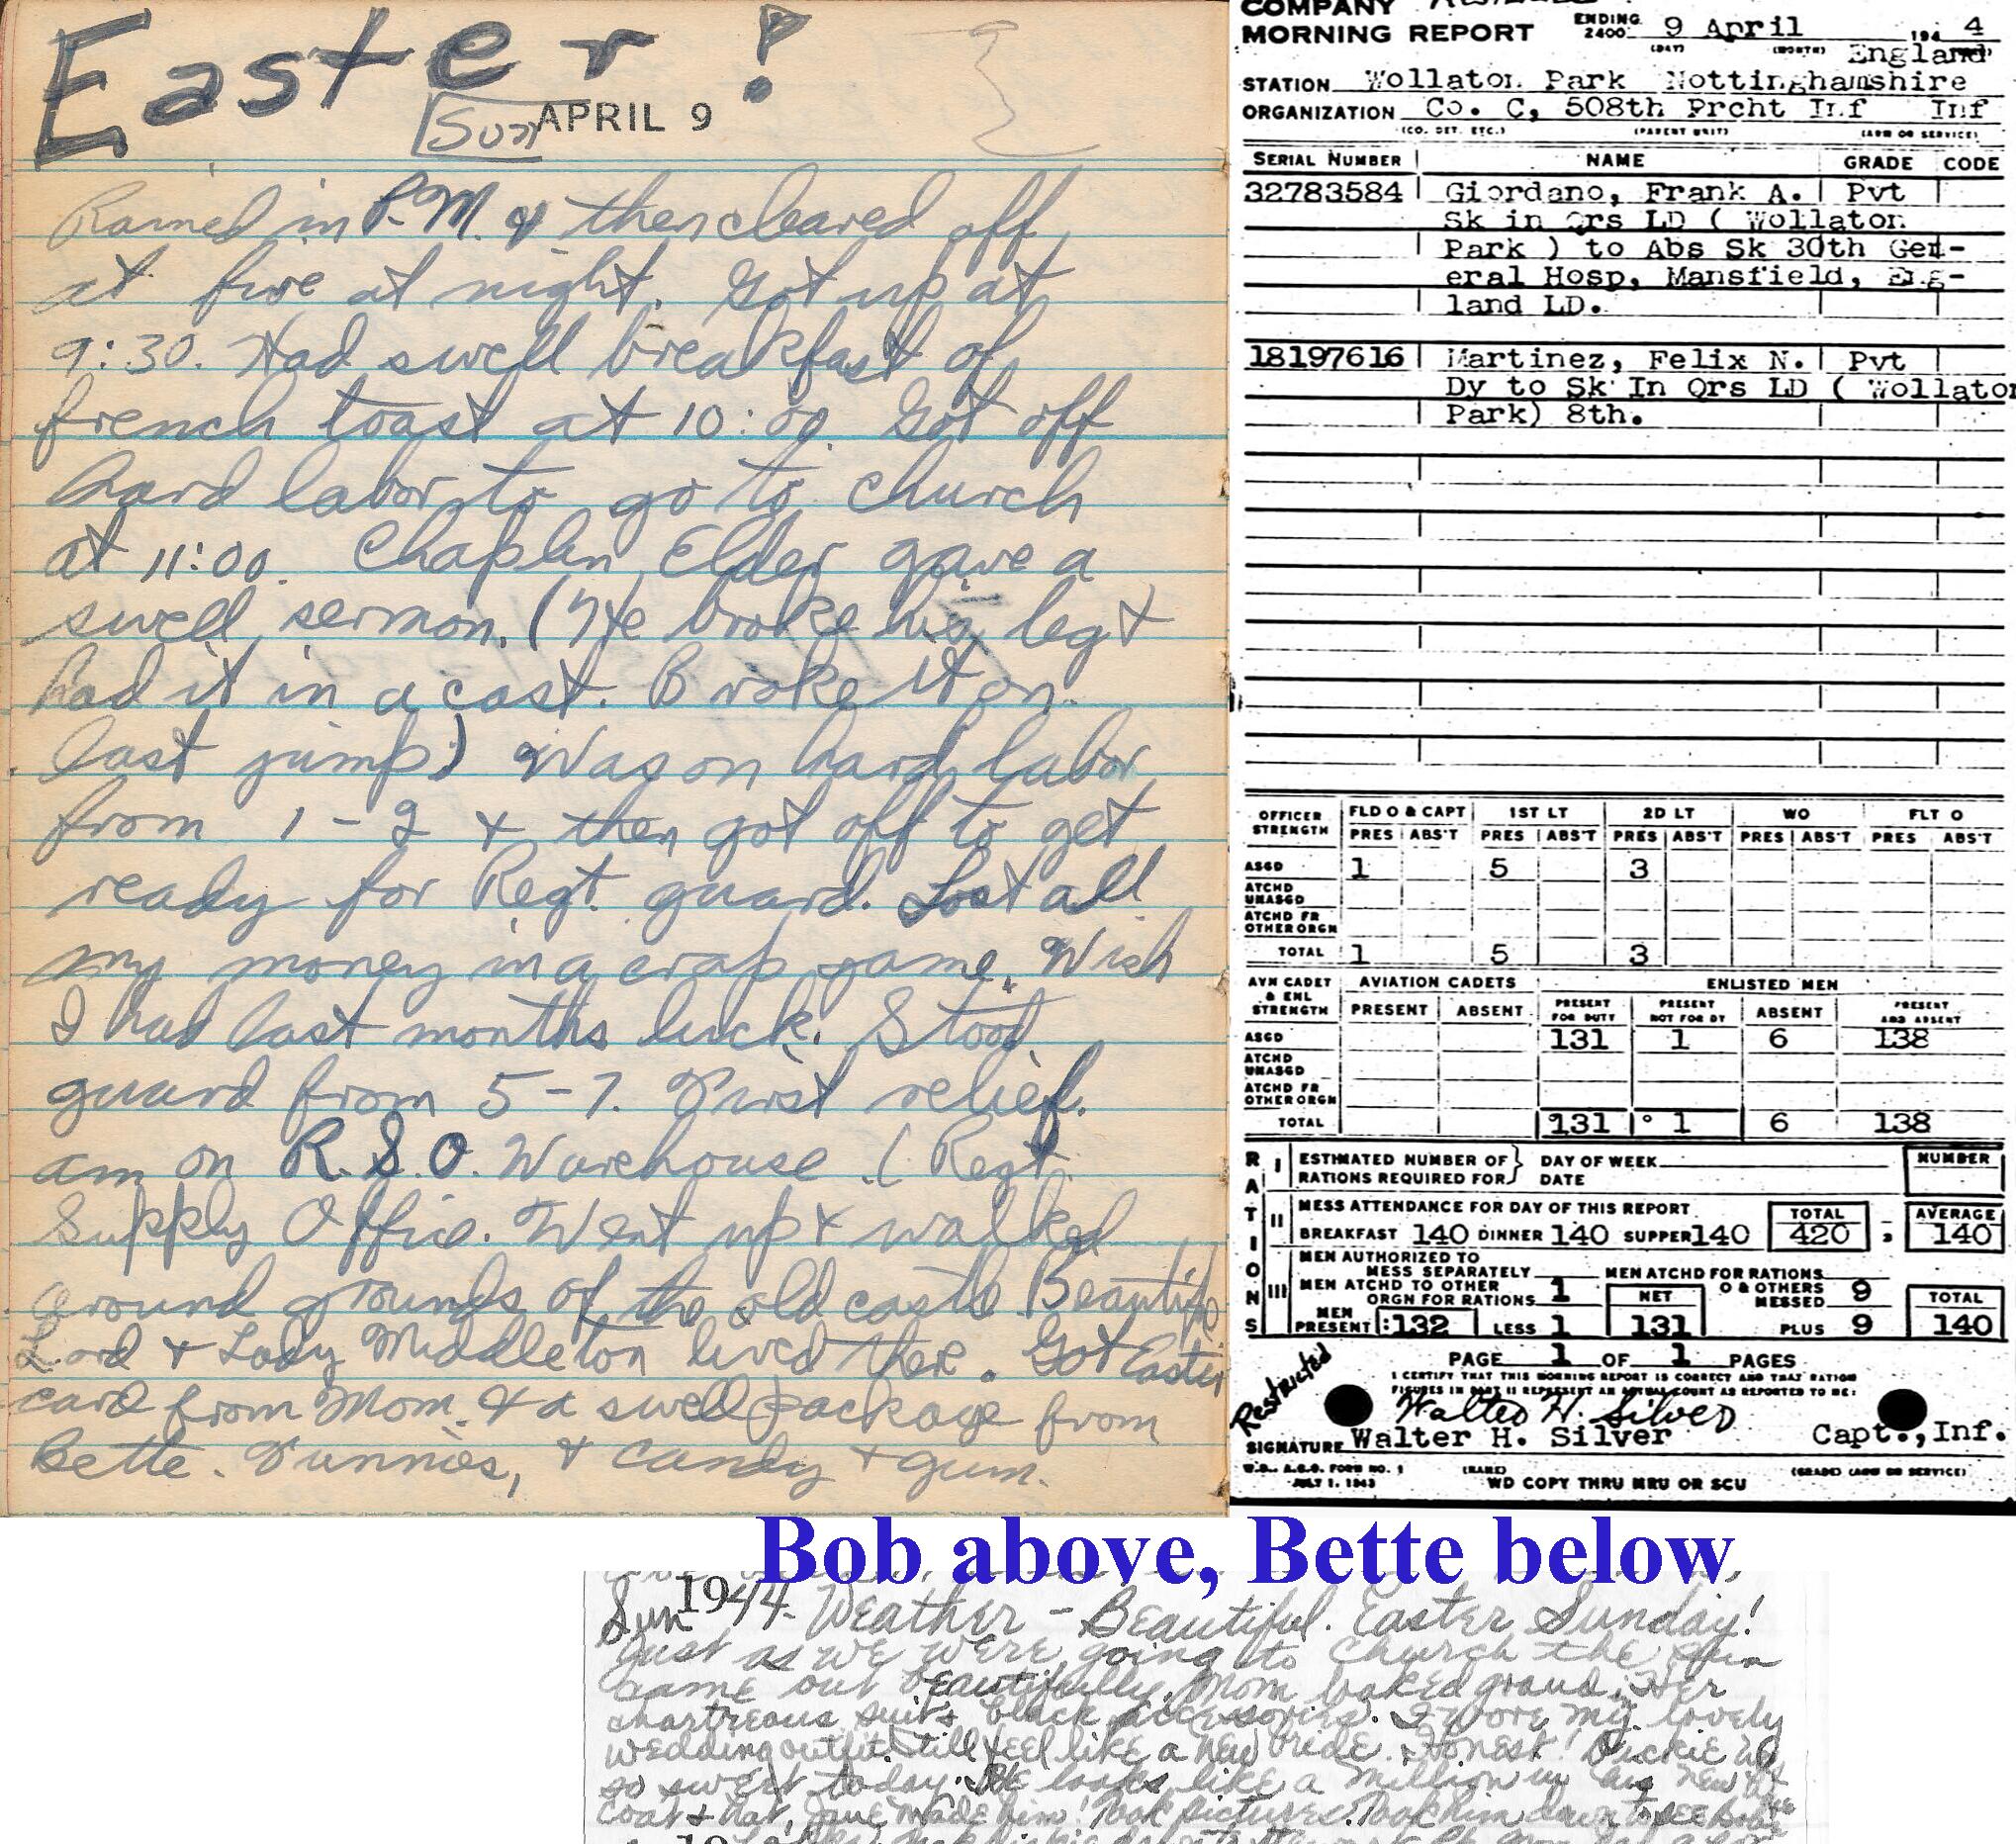 Easter !
Sun APRIL 9
Rained in P.M. & then cleared off
at five at night. Got up at
9:30. Had swell breakfast of
french toast at 10:00. Got off
hard labor to go to church
at 11:00. Chaplen Elder gave a
swell sermon. (He broke his leg &
had it in a cast. Broke it on
last jump.) Was on hard labor
from 1-2 & then got off to get
ready for Regt. guard. Lost all
my money in a crap game. Wish
I had last months luck. Stood
guard from 5-7. First relief.
am on R.S.O. Warehouse (Regt.
Supply Office. Went up & walked
around grounds of the old castle. Beautiful
Lord & Lady Middleton lived there. Got Easter
card from Mom. & a swell package from
Bette. Funnies, & candy & gum.
COMPANY
MORNING REPORT ENDING 2400 9 April 1944
(DAY) (MONTH) England
STATION Wollaton Park Nottinghamshire
ORGANIZATION Co. C, 508th Prcht Inf Inf
(CO. DET. ETC.) (PARENT UNIT) (ARM OR SERVICE)
SERIAL NUMBER NAME GRADE CODE
32783584 Giordano, Frank A. Pvt
Sk in Qrs LD ( Wollaton
Park ) to Abs Sk 30th Gen-
eral Hosp, Mansfield, Eng-
land LD.
18197616 Martinez, Felix N. Pvt
Dy to Sk In Qrs LD ( Wollaton
Park) 8th.
OFFICER STRENGTH FLD O & CAPT 1ST LT 2D LT WO FLT O
PRES ABS'T PRES ABS'T PRES ABS'T PRES ABS'T PRES ABS'T
ASGD 1 5 3
ATCHD UNASGD
ATCHD FR OTHER ORGN
TOTAL 1 5 3
AVN CADET & ENL STRENGTH AVIATION CADETS ENLISTED MEN
PRESENT ABSENT PRESENT FOR DUTY PRESENT NOT FOR DY ABSENT PRESENT AND ABSENT
ASGD 131 1 6 138
ATCHD UNASGD
ATCHD FR OTHER ORGN
TOTAL 131 1 6 138
RATIONS
I ESTIMATED NUMBER OF RATIONS REQUIRED FOR DAY OF WEEK DATE NUMBER
II MESS ATTENDANCE FOR DAY OF THIS REPORT TOTAL AVERAGE
BREAKFAST 140 DINNER 140 SUPPER 140 420 140
III MEN AUTHORIZED TO MESS SEPARATELY MEN ATCHD FOR RATIONS
MEN ATCHD TO OTHER ORGN FOR RATIONS 1 NET O & OTHERS MESSED 9 TOTAL
MEN PRESENT 132 LESS 1 131 PLUS 9 140
PAGE 1 OF 1 PAGES
Restricted
I CERTIFY THAT THIS MORNING REPORT IS CORRECT AND THAT RATION
FIGURES IN PART II REPRESENT AN ACTUAL COUNT AS REPORTED TO ME:
Walter H. Silver
SIGNATURE Walter H. Silver Capt., Inf.
W.D., A.G.O. FORM NO. 1 (NAME) (GRADE) (ARM OR SERVICE)
JULY 1, 1943 WD COPY THRU MRU OR SCU
Bob above, Bette below
Sun 1944- Weather - Beautiful. Easter Sunday!
Just as we were going to Church the sun
came out beautifully. Mom looked grand. Her
chartreous suit & black accessories. I wore my lovely
wedding outfit. Still feel like a new bride. Honest! Dickie was
so sweet today. He looks like a million in his new
coat & hat, June made him! Took pictures. Took him down to see